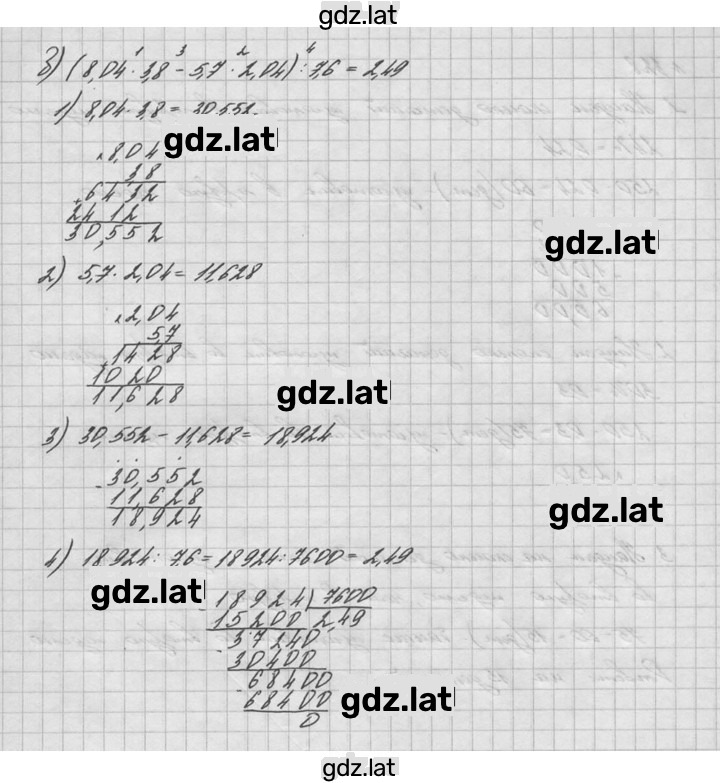 gdz.lat
б) (8,04 · 3,8 - 5,7 · 2,04) : 7,6 = 2,49
1 3 2 4
1) 8,04 · 3,8 = 30,552.
gdz.lat
× 8,04
3,8
+ 6432
2412
30,552
gdz.lat
2) 5,7 · 2,04 = 11,628
× 2,04
5,7
+ 1428
1020
11,628
gdz.lat
3) 30,552 - 11,628 = 18,924
- 30,552
11,628
18,924
gdz.lat
4) 18,924 : 7,6 = 18924 : 7600 = 2,49
gdz.lat
- 18924 | 7600
15200 2,49
- 37240
30400
- 68400
68400
0
gdz.lat
gdz.lat